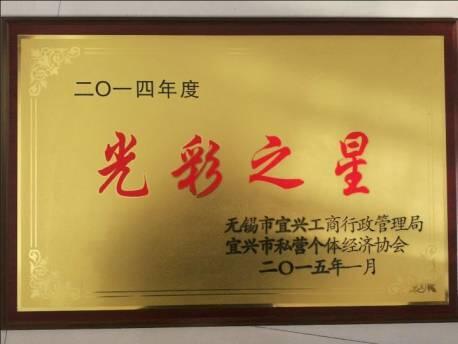 二〇一四年度
光彩之星
无锡市宜兴工商行政管理局
宜兴市私营个体经济协会
二〇一五年一月